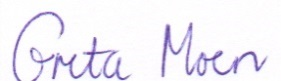 Greta Moen